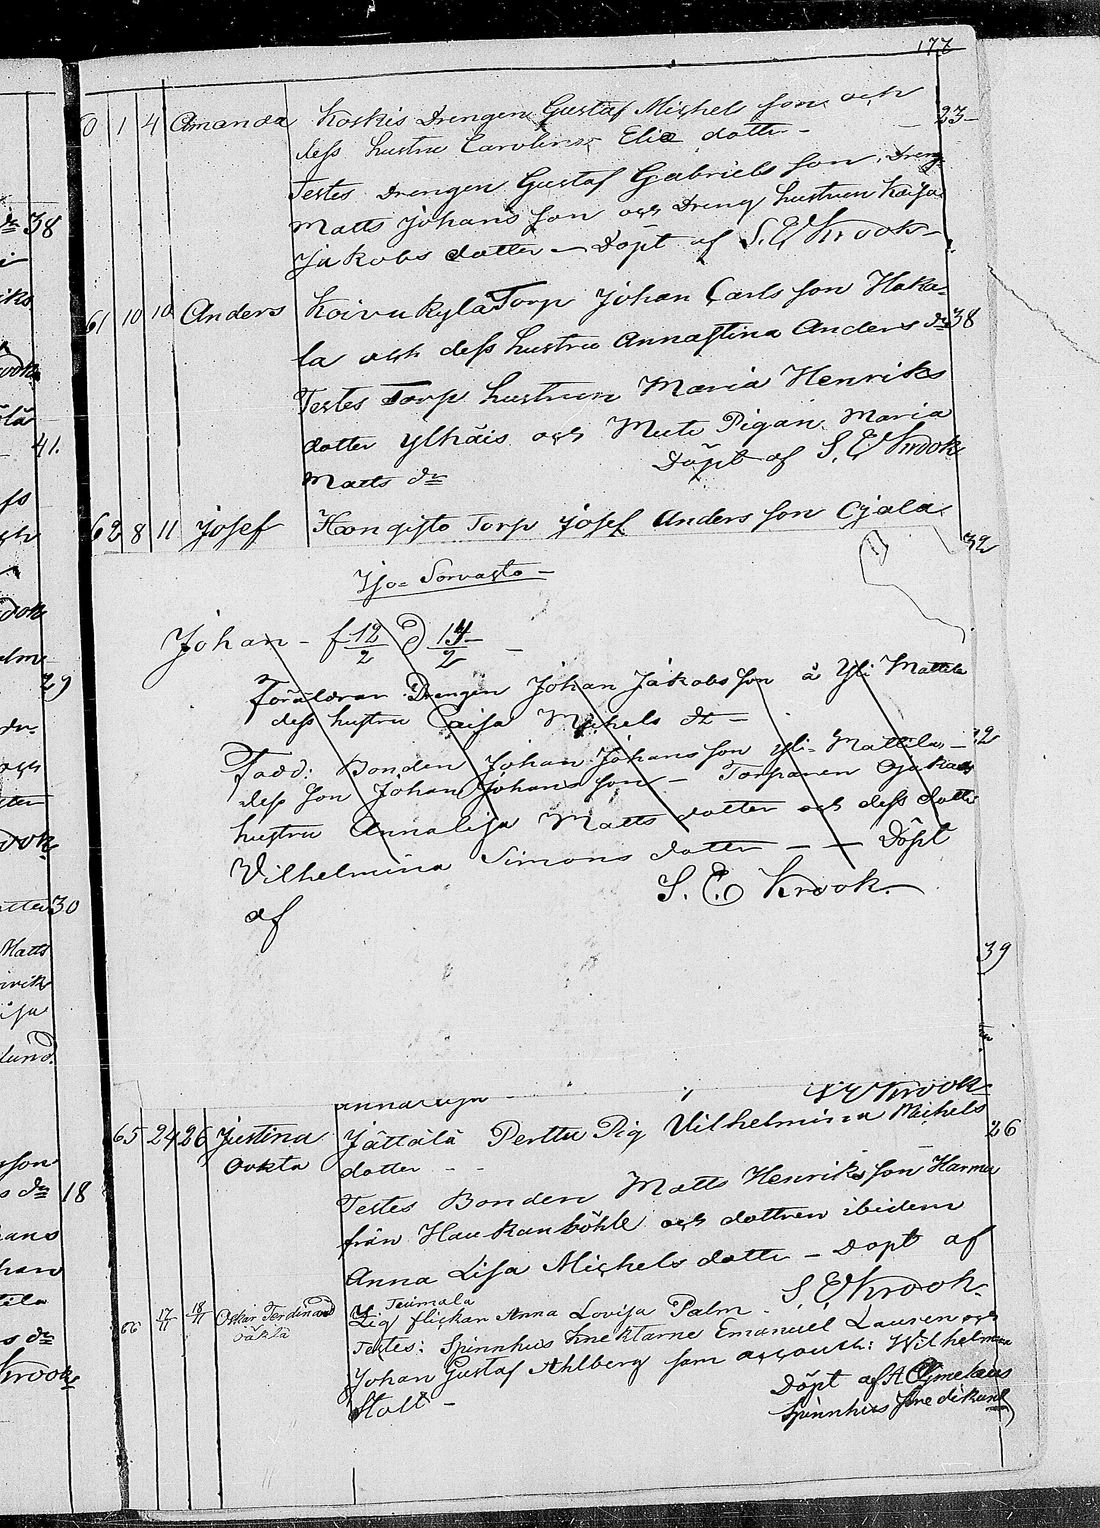 177
0 1 4 Amanda Koskis Drengen Gustaf Michels son och 23
dess hustru Carolina Elia dotter
Testes Drengen Gustaf Gabriels son, Dreng
Matts Johans son och Dreng hustrun Kaisa
Jakobs dotter — Döpt af S. E Krook
61 10 10 Anders Koivukylä Torp Johan Carls son Haka-
la och dess hustru Annastina Anders dr 38
Testes Torp hustrun Maria Henriks
dotter Ylhäis och Pigan Maria
Matts dr Döpt af S. E Krook
62 8 11 Josef Hongisto Torp Josef Anders son Ojala
32
Yjo= Sorvasto
Johan - f 12/2 D 14/2
Föräldrar Drengen Johan Jakobs son å Yli Mattila
dess hustru Caisa Michels dr
Fadd: Bonden Johan Johans son Yli= Mattila
dess son Johan Johans son — Torparen
hustru Annalisa Matts dotter och dess dotter
Vilhelmina Simons dotter — — Döpt
af S. E Krook.
39
Annalisa S E Krook
65 24 26 Justina Jättälä Perttu Pig Vilhelmina Michels 26
oäkta dotter
Testes Bonden Matts Henriks son
från Haukanböhle och dottren ibidem
Anna Lisa Michels dotter — Döpt af
S. E Krook.
66 17/11 18/11 Oskar Ferdinand
oäkta
flickan Anna Lovisa Palm.
Testes: Spinnhus Knektarne Emanuel Lauren och
Johan Gustaf Ahlberg som accouch: Wilhelmina
Stolt — Döpt af
Spinnhus Predikant